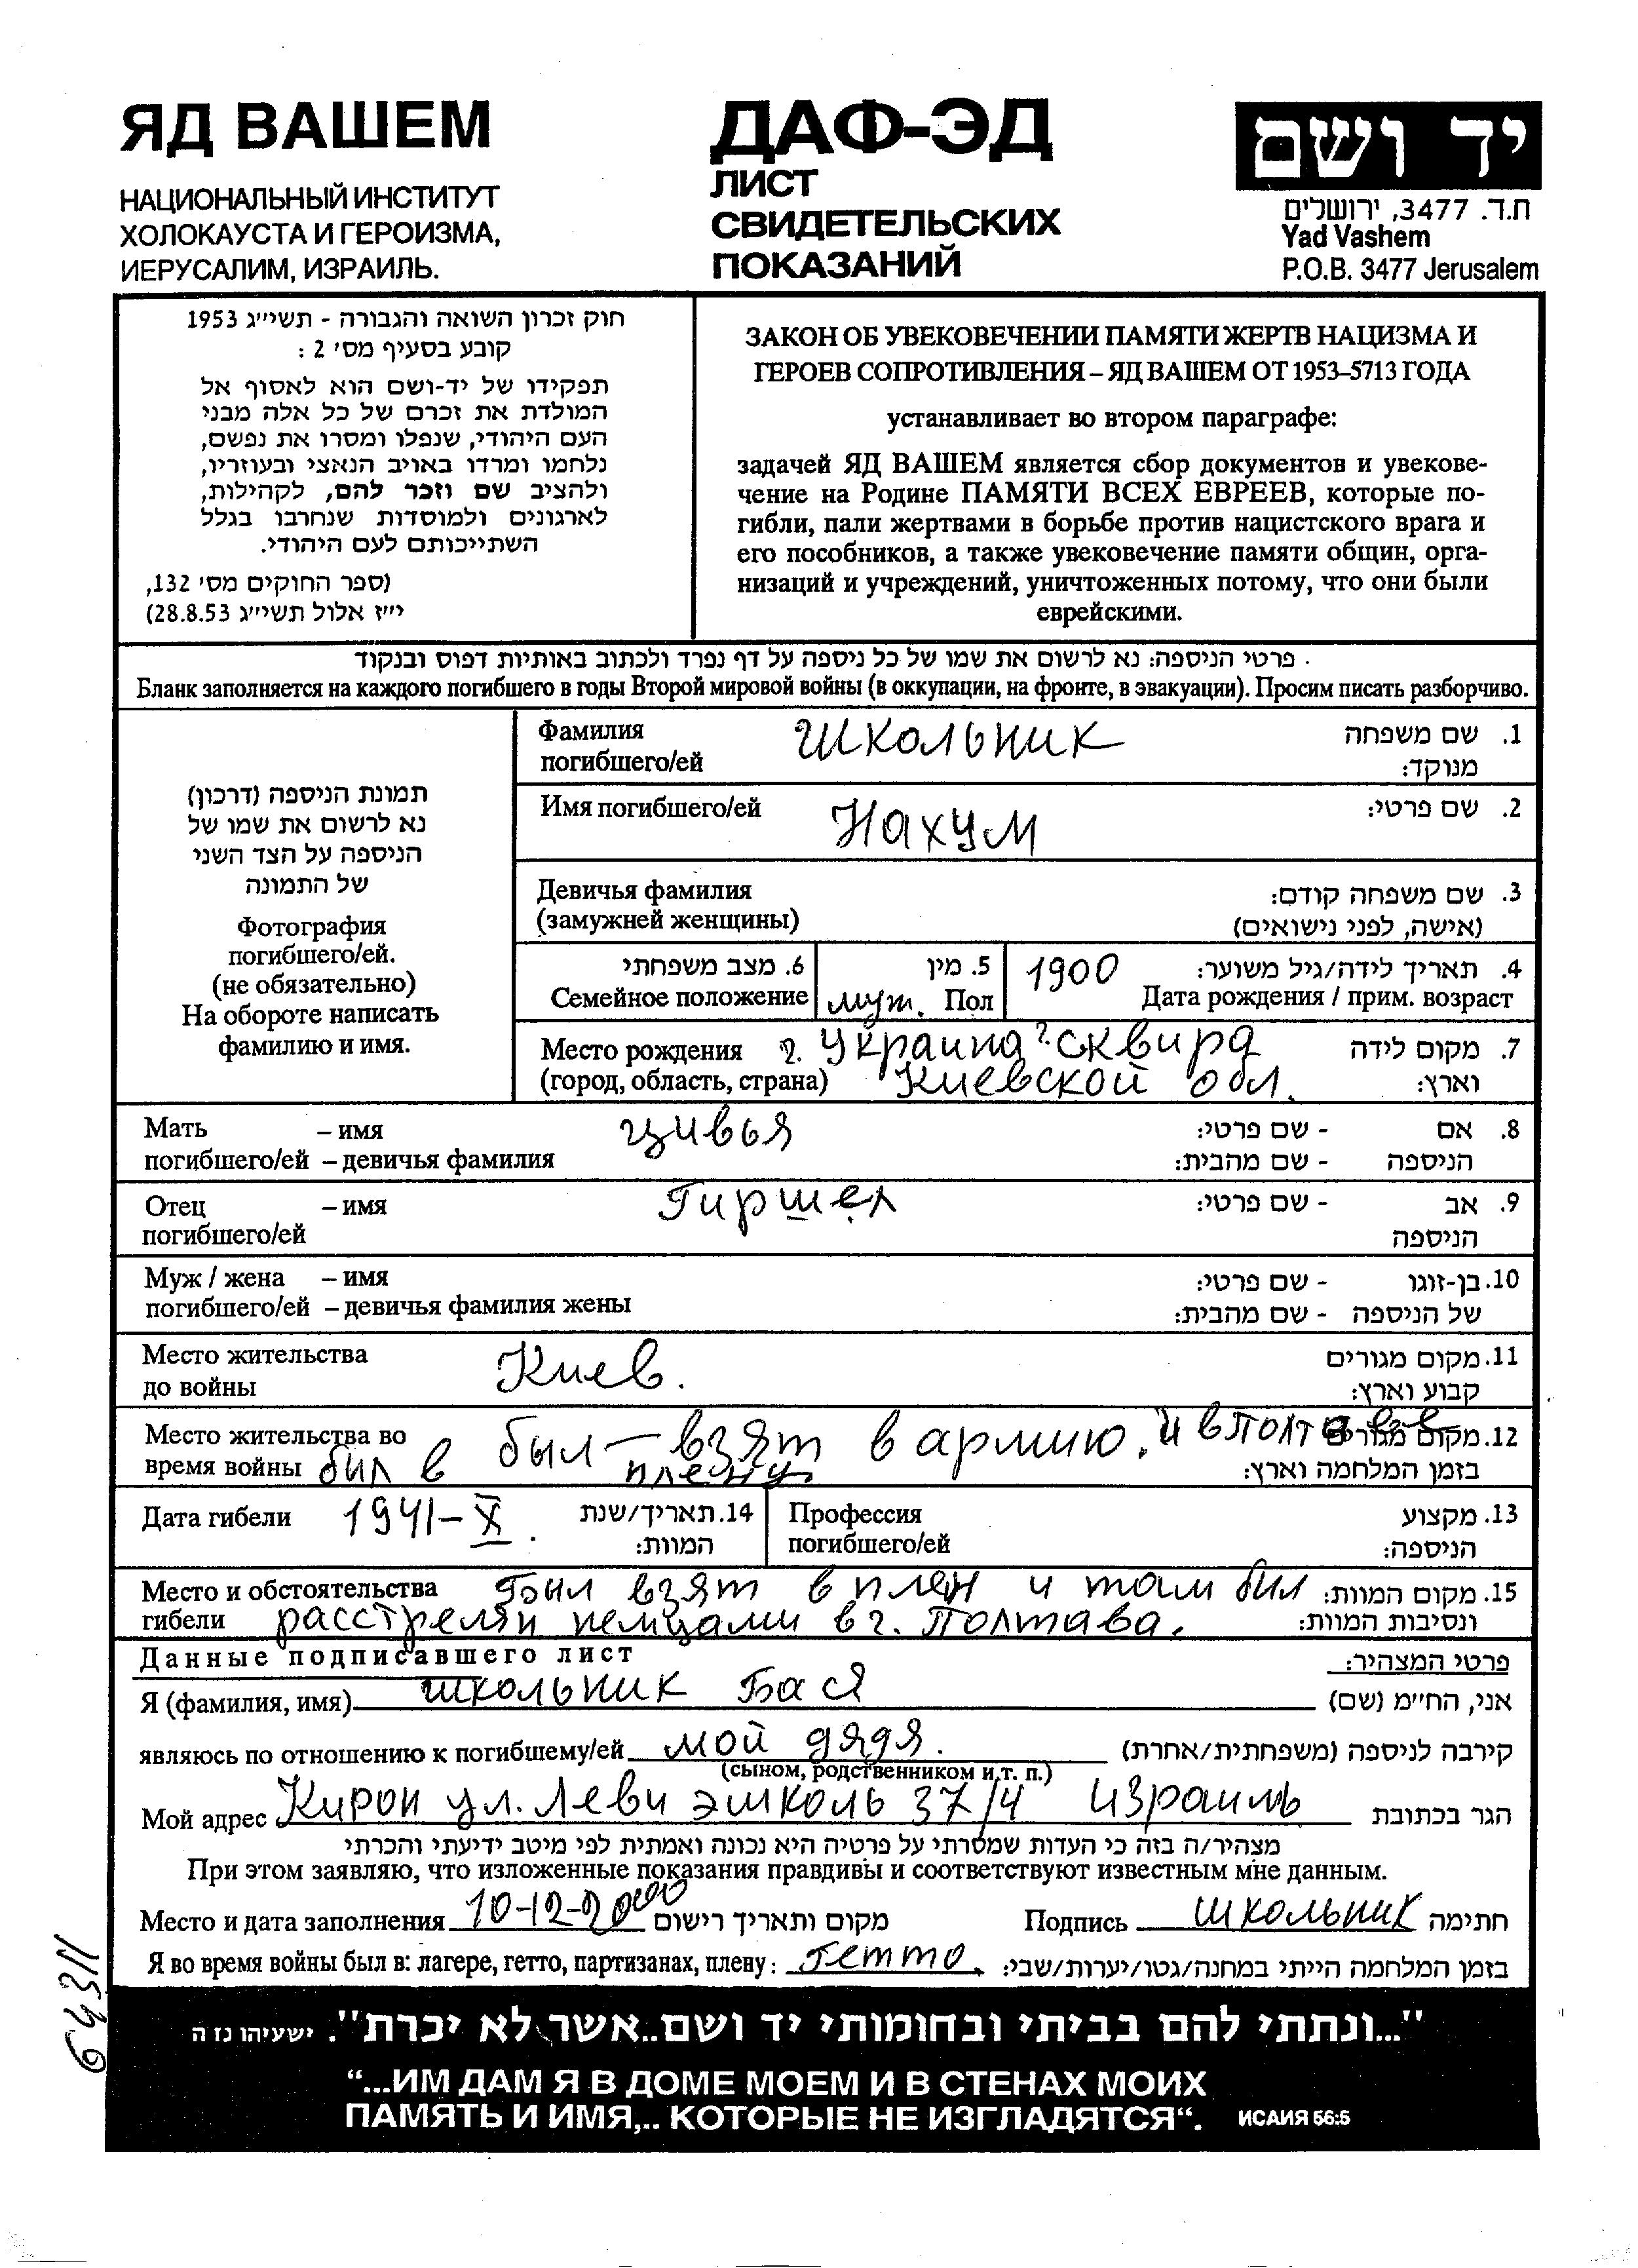 ЯД ВАШЕМ
НАЦИОНАЛЬНЫЙ ИНСТИТУТ
ХОЛОКАУСТА И ГЕРОИЗМА,
ИЕРУСАЛИМ, ИЗРАИЛЬ.
ДАФ-ЭД
ЛИСТ
СВИДЕТЕЛЬСКИХ
ПОКАЗАНИЙ
יד ושם
ת.ד. 3477, ירושלים
Yad Vashem
P.O.B. 3477 Jerusalem
חוק זכרון השואה והגבורה - תשי״ג 1953
קובע בסעיף מס׳ 2 :
תפקידו של יד-ושם הוא לאסוף אל
המולדת את זכרם של כל אלה מבני
העם היהודי, שנפלו ומסרו את נפשם,
נלחמו ומרדו באויב הנאצי ובעוזריו,
ולהציב שם וזכר להם, לקהילות,
לארגונים ולמוסדות שנחרבו בגלל
השתייכותם לעם היהודי.
(ספר החוקים מס׳ 132,
י״ז אלול תשי״ג 28.8.53)
ЗАКОН ОБ УВЕКОВЕЧЕНИИ ПАМЯТИ ЖЕРТВ НАЦИЗМА И
ГЕРОЕВ СОПРОТИВЛЕНИЯ – ЯД ВАШЕМ ОТ 1953–5713 ГОДА
устанавливает во втором параграфе:
задачей ЯД ВАШЕМ является сбор документов и увекове-
чение на Родине ПАМЯТИ ВСЕХ ЕВРЕЕВ, которые по-
гибли, пали жертвами в борьбе против нацистского врага и
его пособников, а также увековечение памяти общин, орга-
низаций и учреждений, уничтоженных потому, что они были
еврейскими.
פרטי הניספה: נא לרשום את שמו של כל ניספה על דף נפרד ולכתוב באותיות דפוס ובנקוד .
Бланк заполняется на каждого погибшего в годы Второй мировой войны (в оккупации, на фронте, в эвакуации). Просим писать разборчиво.
תמונת הניספה (דרכון)
נא לרשום את שמו של
הניספה על הצד השני
של התמונה
Фотография
погибшего/ей.
(не обязательно)
На обороте написать
фамилию и имя.
Фамилия школьник 1. שם משפחה
погибшего/ей מנוקד:
Имя погибшего/ей Нахум 2. שם פרטי:
Девичья фамилия 3. שם משפחה קודם:
(замужней женщины) (אישה, לפני נישואים)
6. מצב משפחתי 5. מין 1900 4. תאריך לידה/גיל משוער:
Семейное положение муж. Пол Дата рождения / прим. возраст
Место рождения г. Украина г. сквира 7. מקום לידה
(город, область, страна) Киевской обл. וארץ:
Мать – имя цивья 8. אם - שם פרטי:
погибшего/ей – девичья фамилия הניספה - שם מהבית:
Отец – имя Гиршел 9. אב - שם פרטי:
погибшего/ей הניספה
Муж / жена – имя 10. בן-זוגו - שם פרטי:
погибшего/ей – девичья фамилия жены של הניספה - שם מהבית:
Место жительства Киев. 11. מקום מגורים
до войны קבוע וארץ:
Место жительства во был взят в армию. и в полтаве 12. מקום מגורים
время войны бил в плену בזמן המלחמה וארץ:
Дата гибели 1941-X. 14. תאריך/שנת Профессия 13. מקצוע
המוות: погибшего/ей הניספה:
Место и обстоятельства бил взят в плен и там бил 15. מקום המוות:
гибели расстрелян немцами в г. Полтава. ונסיבות המוות:
Данные подписавшего лист פרטי המצהיר:
Я (фамилия, имя) школьник Бася אני, החי״מ (שם)
являюсь по отношению к погибшему/ей мой дядя. קירבה לניספה (משפחתית/אחרת)
(сыном, родственником и.т. п.)
Мой адрес Кирон ул. Леви эшколь 37/4 израиль הגר בכתובת
מצהיר/ה בזה כי העדות שמסרתי על פרטיה היא נכונה ואמתית לפי מיטב ידיעתי והכרתי
При этом заявляю, что изложенные показания правдивы и соответствуют известным мне данным.
Место и дата заполнения 10-12-2000 מקום ותאריך רישום Подпись школьник חתימה
Я во время войны был в: лагере, гетто, партизанах, плену: Гетто. בזמן המלחמה הייתי במחנה/גטו/יערות/שבי:
"...ונתתי להם בביתי ובחומותי יד ושם..אשר לא יכרת". ישעיהו נז ה
“...ИМ ДАМ Я В ДОМЕ МОЕМ И В СТЕНАХ МОИХ
ПАМЯТЬ И ИМЯ,.. КОТОРЫЕ НЕ ИЗГЛАДЯТСЯ“. ИСАИЯ 56:5